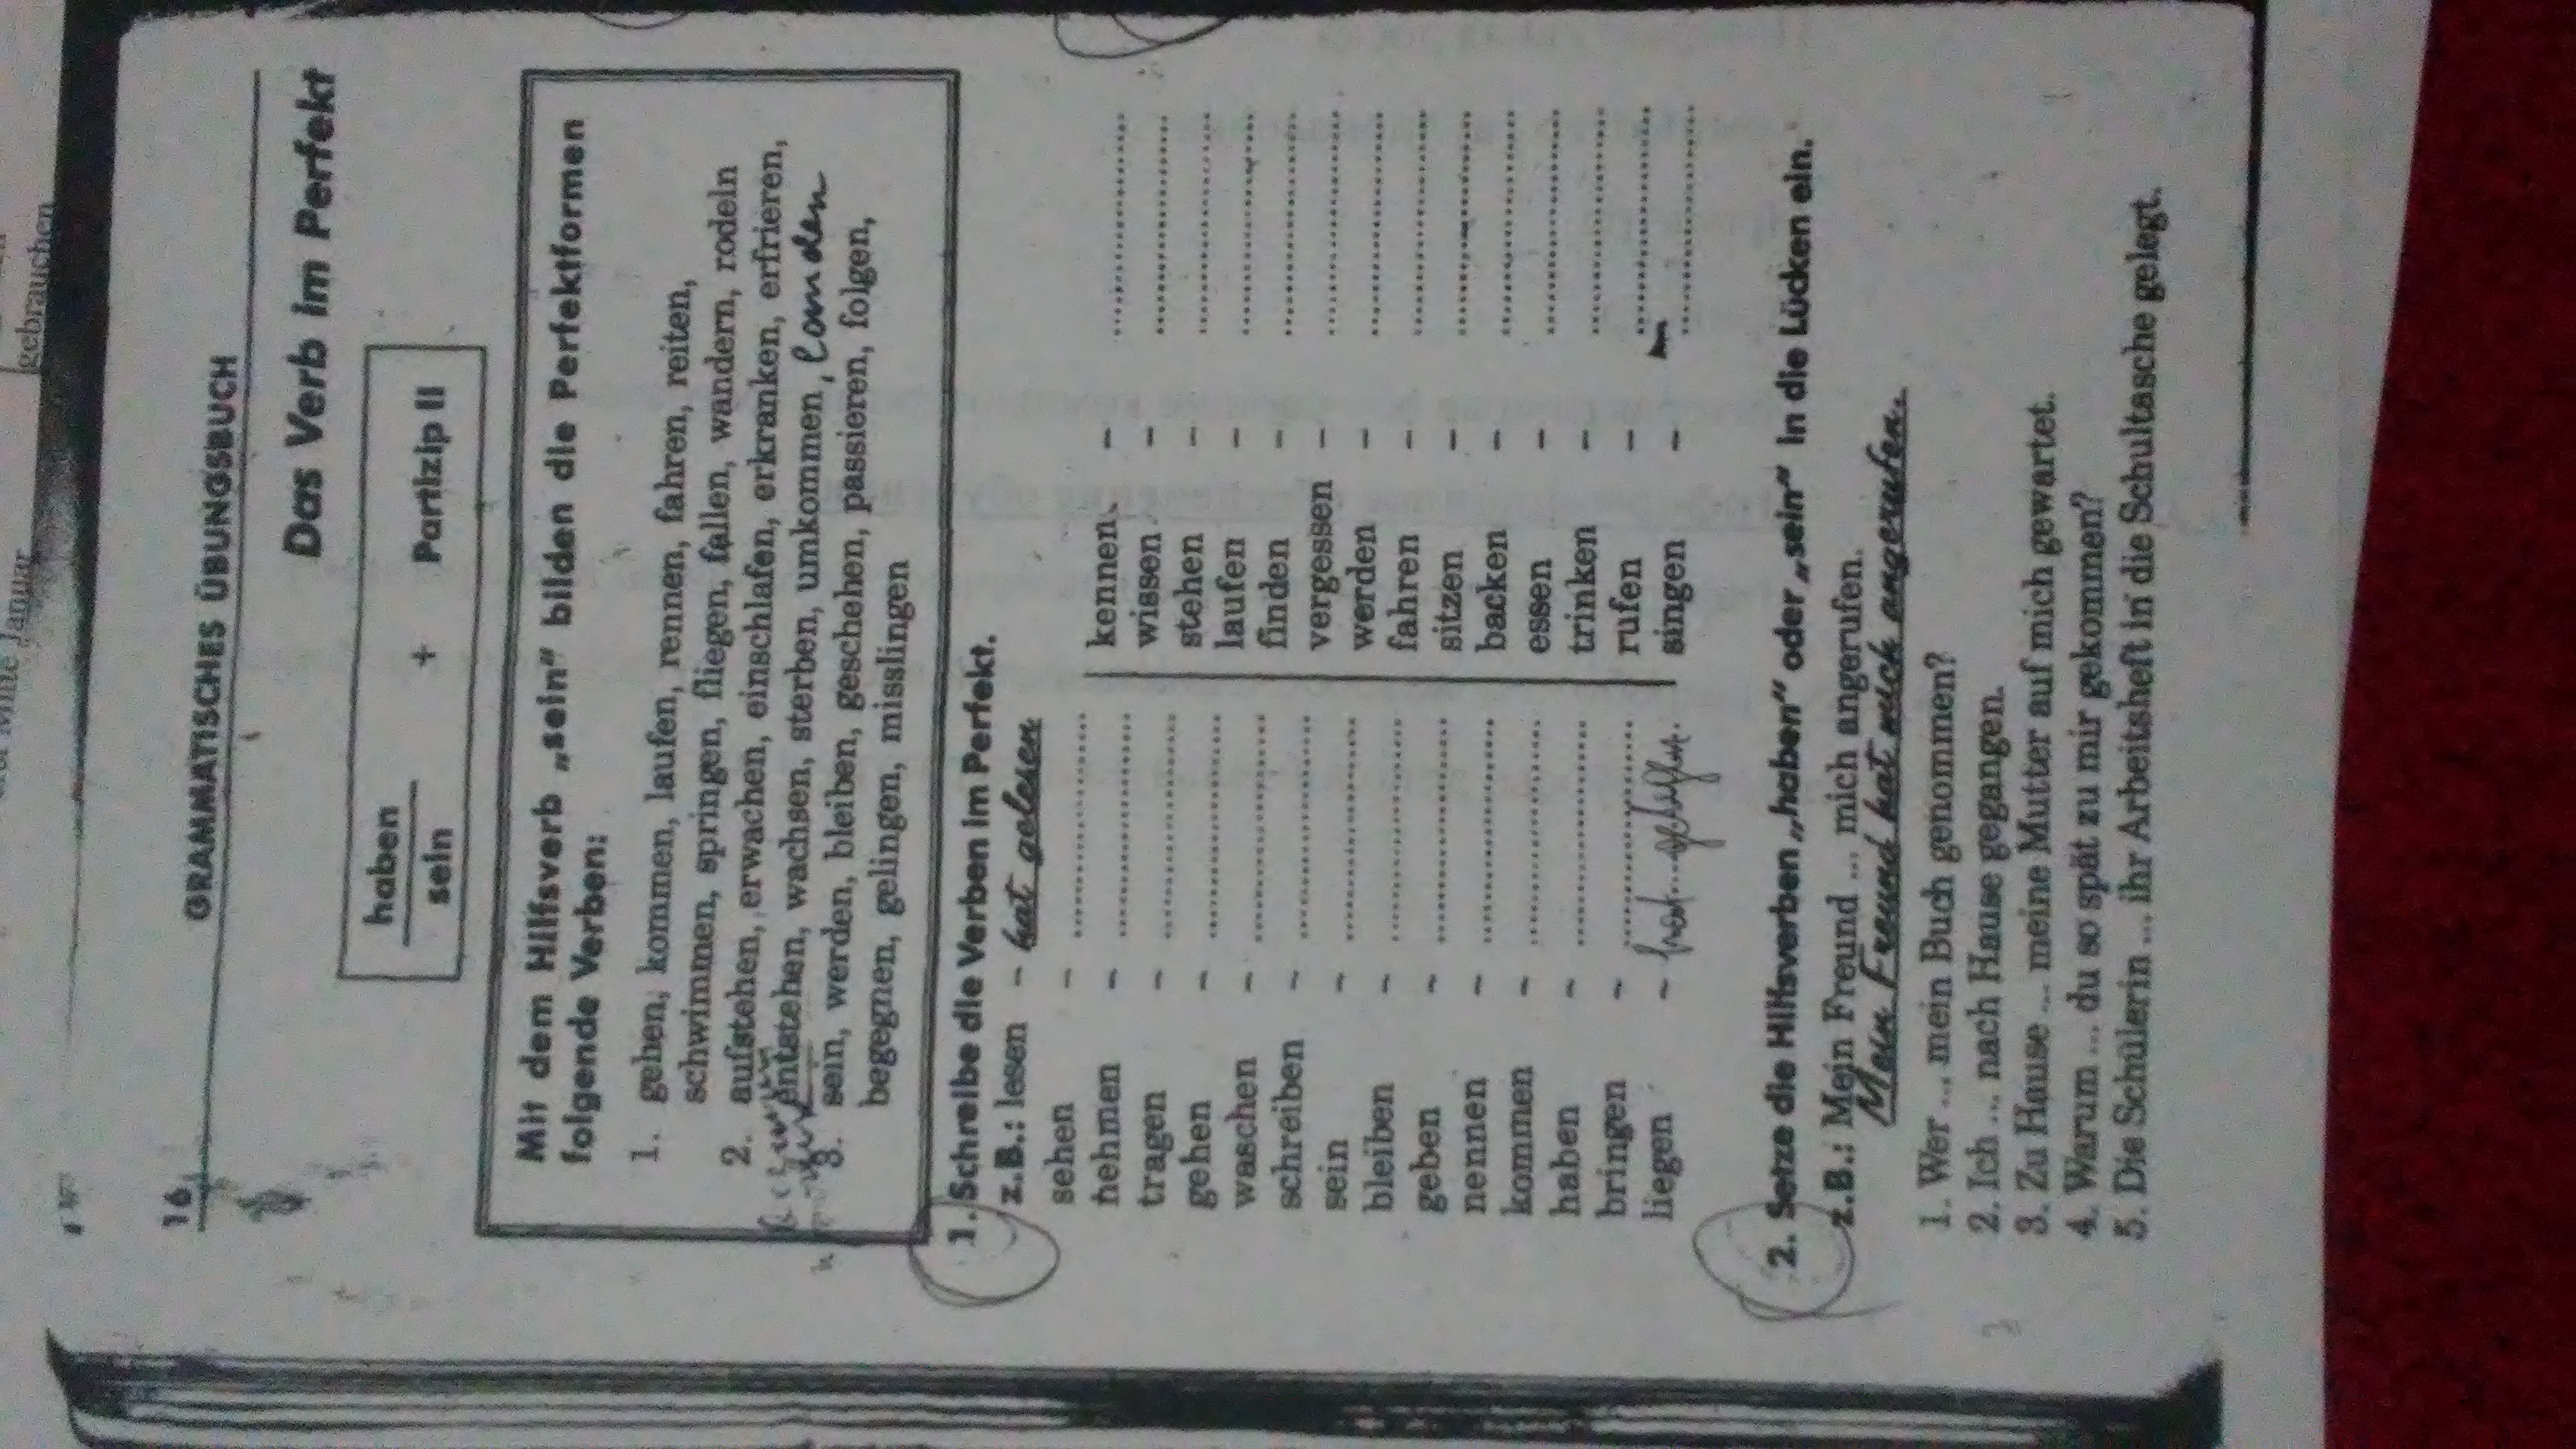 gebrauchen
16
GRAMMATISCHES ÜBUNGSBUCH
Das Verb im Perfekt
haben
sein
+
Partizip II
Mit dem Hilfsverb „sein" bilden die Perfektformen
folgende Verben:
1. gehen, kommen, laufen, rennen, fahren, reiten,
schwimmen, springen, fliegen, fallen, wandern, rodeln
2. aufstehen, erwachen, einschlafen, erkranken, erfrieren,
entstehen, wachsen, sterben, umkommen, landen
3. sein, werden, bleiben, geschehen, passieren, folgen,
begegnen, gelingen, misslingen
1. Schreibe die Verben im Perfekt.
z.B.: lesen – hat gelesen
sehen –
nehmen –
tragen –
gehen –
waschen –
schreiben –
sein –
bleiben –
geben –
nennen –
kommen –
haben –
bringen –
liegen –
kennen –
wissen –
stehen –
laufen –
finden –
vergessen –
werden –
fahren –
sitzen –
backen –
essen –
trinken –
rufen –
singen –
2. Setze die Hilfsverben „haben" oder „sein" in die Lücken ein.
z.B.: Mein Freund ... mich angerufen.
Mein Freund hat mich angerufen.
1. Wer ... mein Buch genommen?
2. Ich ... nach Hause gegangen.
3. Zu Hause ... meine Mutter auf mich gewartet.
4. Warum ... du so spät zu mir gekommen?
5. Die Schülerin ... ihr Arbeitsheft in die Schultasche gelegt.